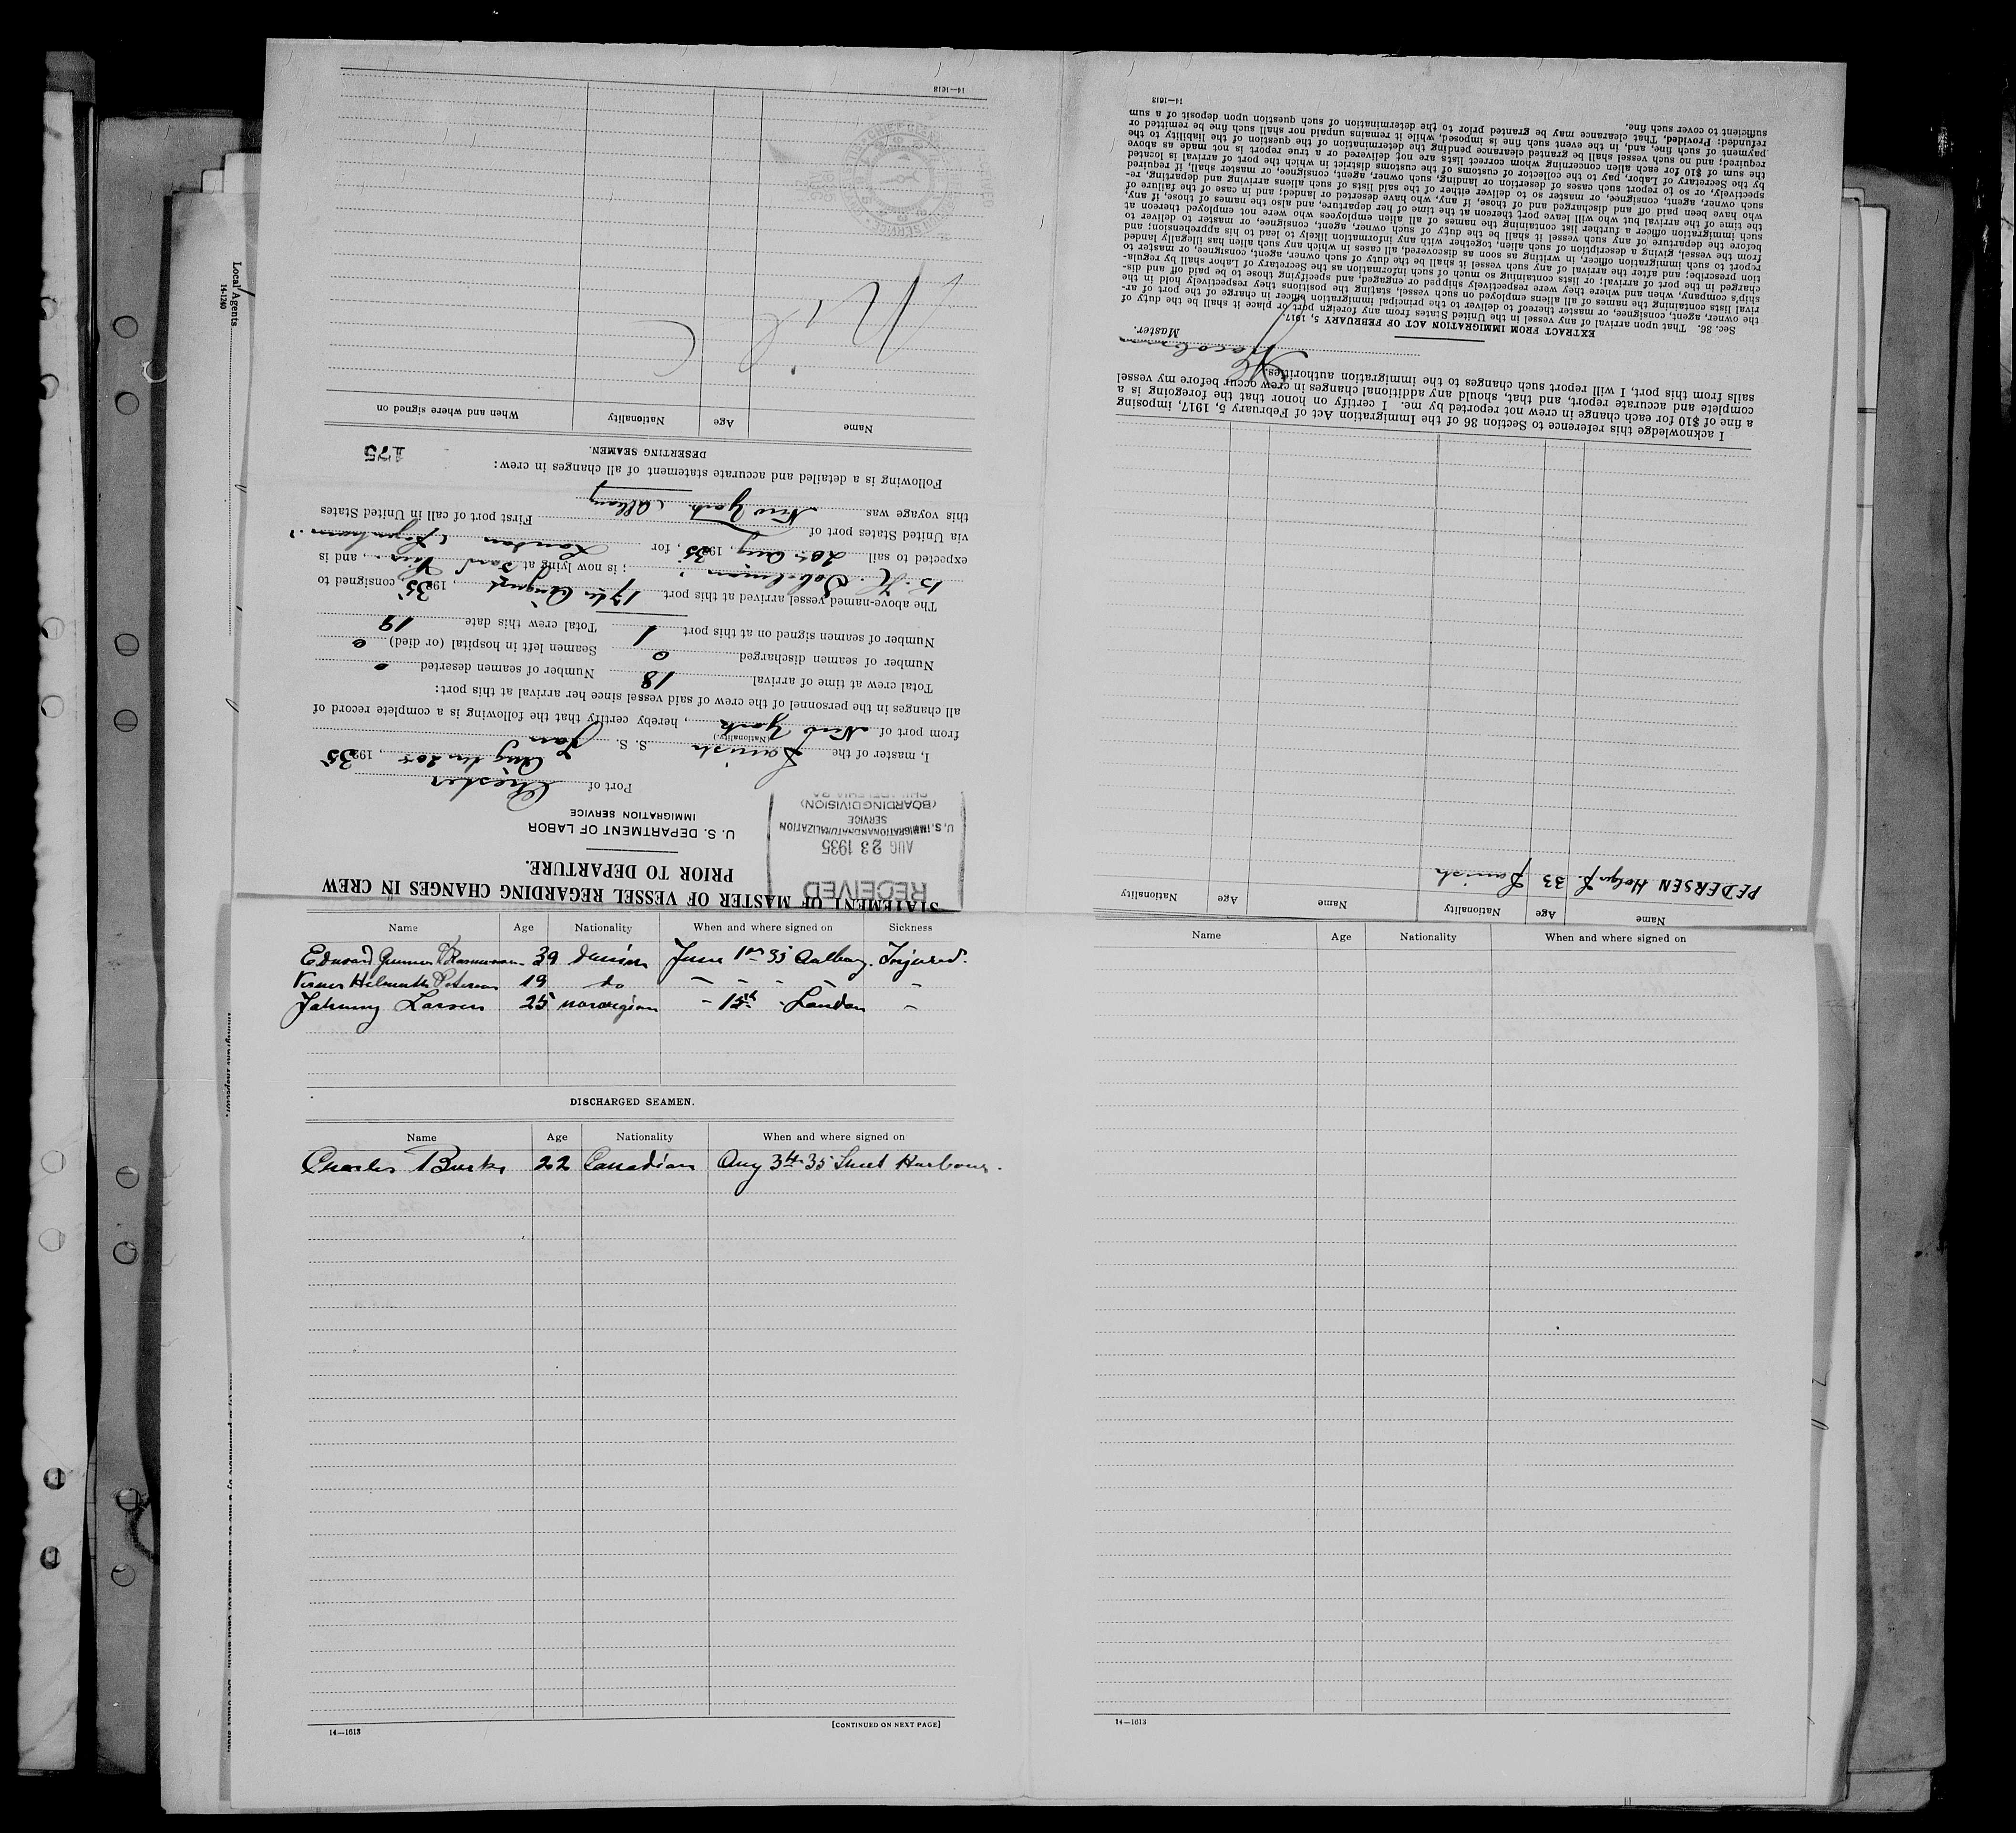 Local Agents
14-1260
STATEMENT OF MASTER OF VESSEL REGARDING CHANGES IN CREW
PRIOR TO DEPARTURE.
RECEIVED
AUG 23 1935
U.S. IMMIGRATION AND NATURALIZATION
SERVICE
(BOARDING DIVISION)
PHILADELPHIA PA
U. S. DEPARTMENT OF LABOR
IMMIGRATION SERVICE
Port of Chester
Aug 20, 1935
I, master of the Danish S. S. Jan
(Nationality)
from port of New York, hereby certify that the following is a complete record of
all changes in the personnel of the crew of said vessel since her arrival at this port:
Total crew at time of arrival 18 Number of seamen deserted 0
Number of seamen discharged 0 Seamen left in hospital (or died) 0
Number of seamen signed on at this port 1 Total crew this date 19
The above-named vessel arrived at this port 17th August, 1935, consigned to
B. H. Sobelman; is now lying at, and is
expected to sail 20 Aug, 1935, for
via United States port of First port of call in United States
this voyage was New York (Albany
Following is a detailed and accurate statement of all changes in crew:
DESERTING SEAMEN.
175
Name Age Nationality When and where signed on
Nil
14—1613
Name Age Nationality Name Age Nationality
PEDERSEN Holger J. 33 Danish
I acknowledge this reference to Section 36 of the Immigration Act of February 5, 1917, imposing
a fine of $10 for each change in crew not reported by me. I certify on honor that the foregoing is a
complete and accurate report, and that, should any additional changes in crew occur before my vessel
sails from this port, I will report such changes to the immigration authorities.
Master.
EXTRACT FROM IMMIGRATION ACT OF FEBRUARY 5, 1917.
Sec. 36. That upon arrival of any vessel in the United States from any foreign port or place it shall be the duty of
the owner, agent, consignee, or master thereof to deliver to the principal immigration officer in charge of the port of ar-
rival lists containing the names of all aliens employed on such vessel, stating the positions they respectively hold in the
ship's company, when and where they were respectively shipped or engaged, and specifying those to be paid off and dis-
charged in the port of arrival; or lists containing so much of such information as the Secretary of Labor shall by regula-
tion prescribe; and after the arrival of any such vessel it shall be the duty of such owner, agent, consignee, or master to
report to such immigration officer, in writing as soon as discovered, all cases in which any such alien has illegally landed
from the vessel, giving a description of such alien, together with any information likely to lead to his apprehension; and
before the departure of any such vessel it shall be the duty of such owner, agent, consignee, or master to deliver to
such immigration officer a further list containing the names of all alien employees who were not employed thereon at
the time of the arrival but who will leave port thereon at the time of her departure, and also the names of those, if any,
who have been paid off and discharged and of those, if any, who have deserted or landed; and in case of the failure of
such owner, agent, consignee, or master so to deliver either of the said lists of such aliens arriving and departing, re-
spectively, or so to report such cases of desertion or landing, such owner, agent, consignee, or master shall, if required
by the Secretary of Labor, pay to the collector of customs of the customs district in which the port of arrival is located
the sum of $10 for each alien concerning whom correct lists are not delivered or a true report is not made as above
required; and no such vessel shall be granted clearance pending the determination of the question of the liability to the
payment of such fine, and, in the event such fine is imposed, while it remains unpaid nor shall such fine be remitted or
refunded: Provided, That clearance may be granted prior to the determination of such question upon deposit of a sum
sufficient to cover such fine.
14—1613
Name Age Nationality When and where signed on Sickness
Edward Gunner Rasmussen 39 danish June 1st 35 Aalborg. Injured.
Verner Hilmuth Petersen 19 do - - - - -
Johnny Larsen 25 norwegian - 15th - London -
DISCHARGED SEAMEN.
Name Age Nationality When and where signed on
Charles Burke 22 Canadian Aug 3th 35 Sheet Harbour.
14—1613
[CONTINUED ON NEXT PAGE]
Name Age Nationality When and where signed on
14—1613